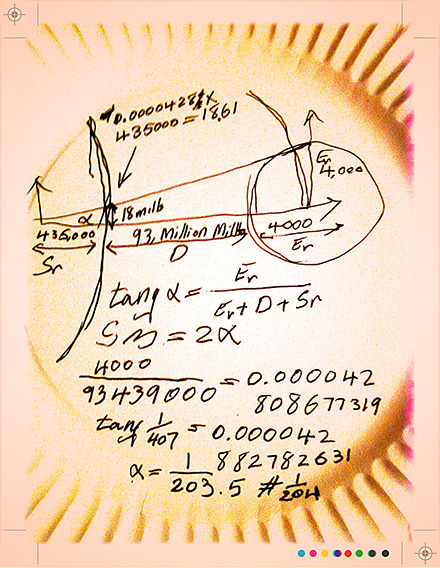 0.000042844 x
435000 = 18,61
Er
4,000
α
18 milb
435,000
93, Million Mills
4000
Sr
D
Er
tang α = Er / Er + D + Sr
= 2α
4000 / 93439000 = 0.000042
808677319
tang 1/407 = 0.000042
882782631
α = 1/203.5 # 1/204